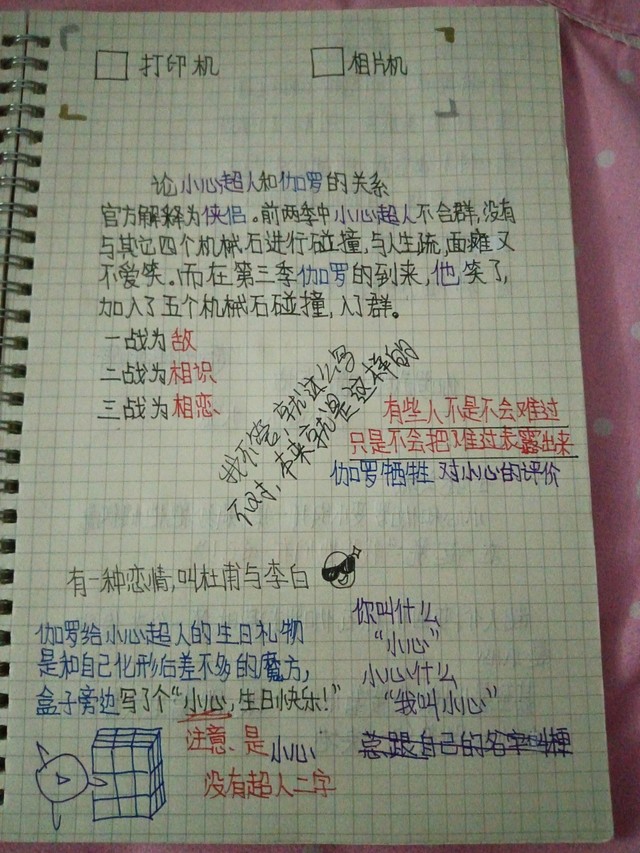 打印机
相片机
论小心超人和伽罗的关系
官方解释为侠侣。前两季中小心超人不合群,没有
与其它四个机械石进行碰撞,与人生疏,面瘫又
不爱笑。而在第三季伽罗的到来,他笑了,
加入了五个机械石碰撞,入了群。
一战为敌
二战为相识
三战为相恋
我不管就这么写
不对,本来就是这样的
有些人不是不会难过
只是不会把难过表露出来
伽罗牺牲对小心的评价
有一种恋情,叫杜甫与李白
伽罗给小心超人的生日礼物
是和自己化形后差不多的魔方,
盒子旁边写了个“小心,生日快乐!”
注意、是小心
没有超人二字
你叫什么
“小心”
小心什么
“我叫小心”
总跟自己的名字叫梗